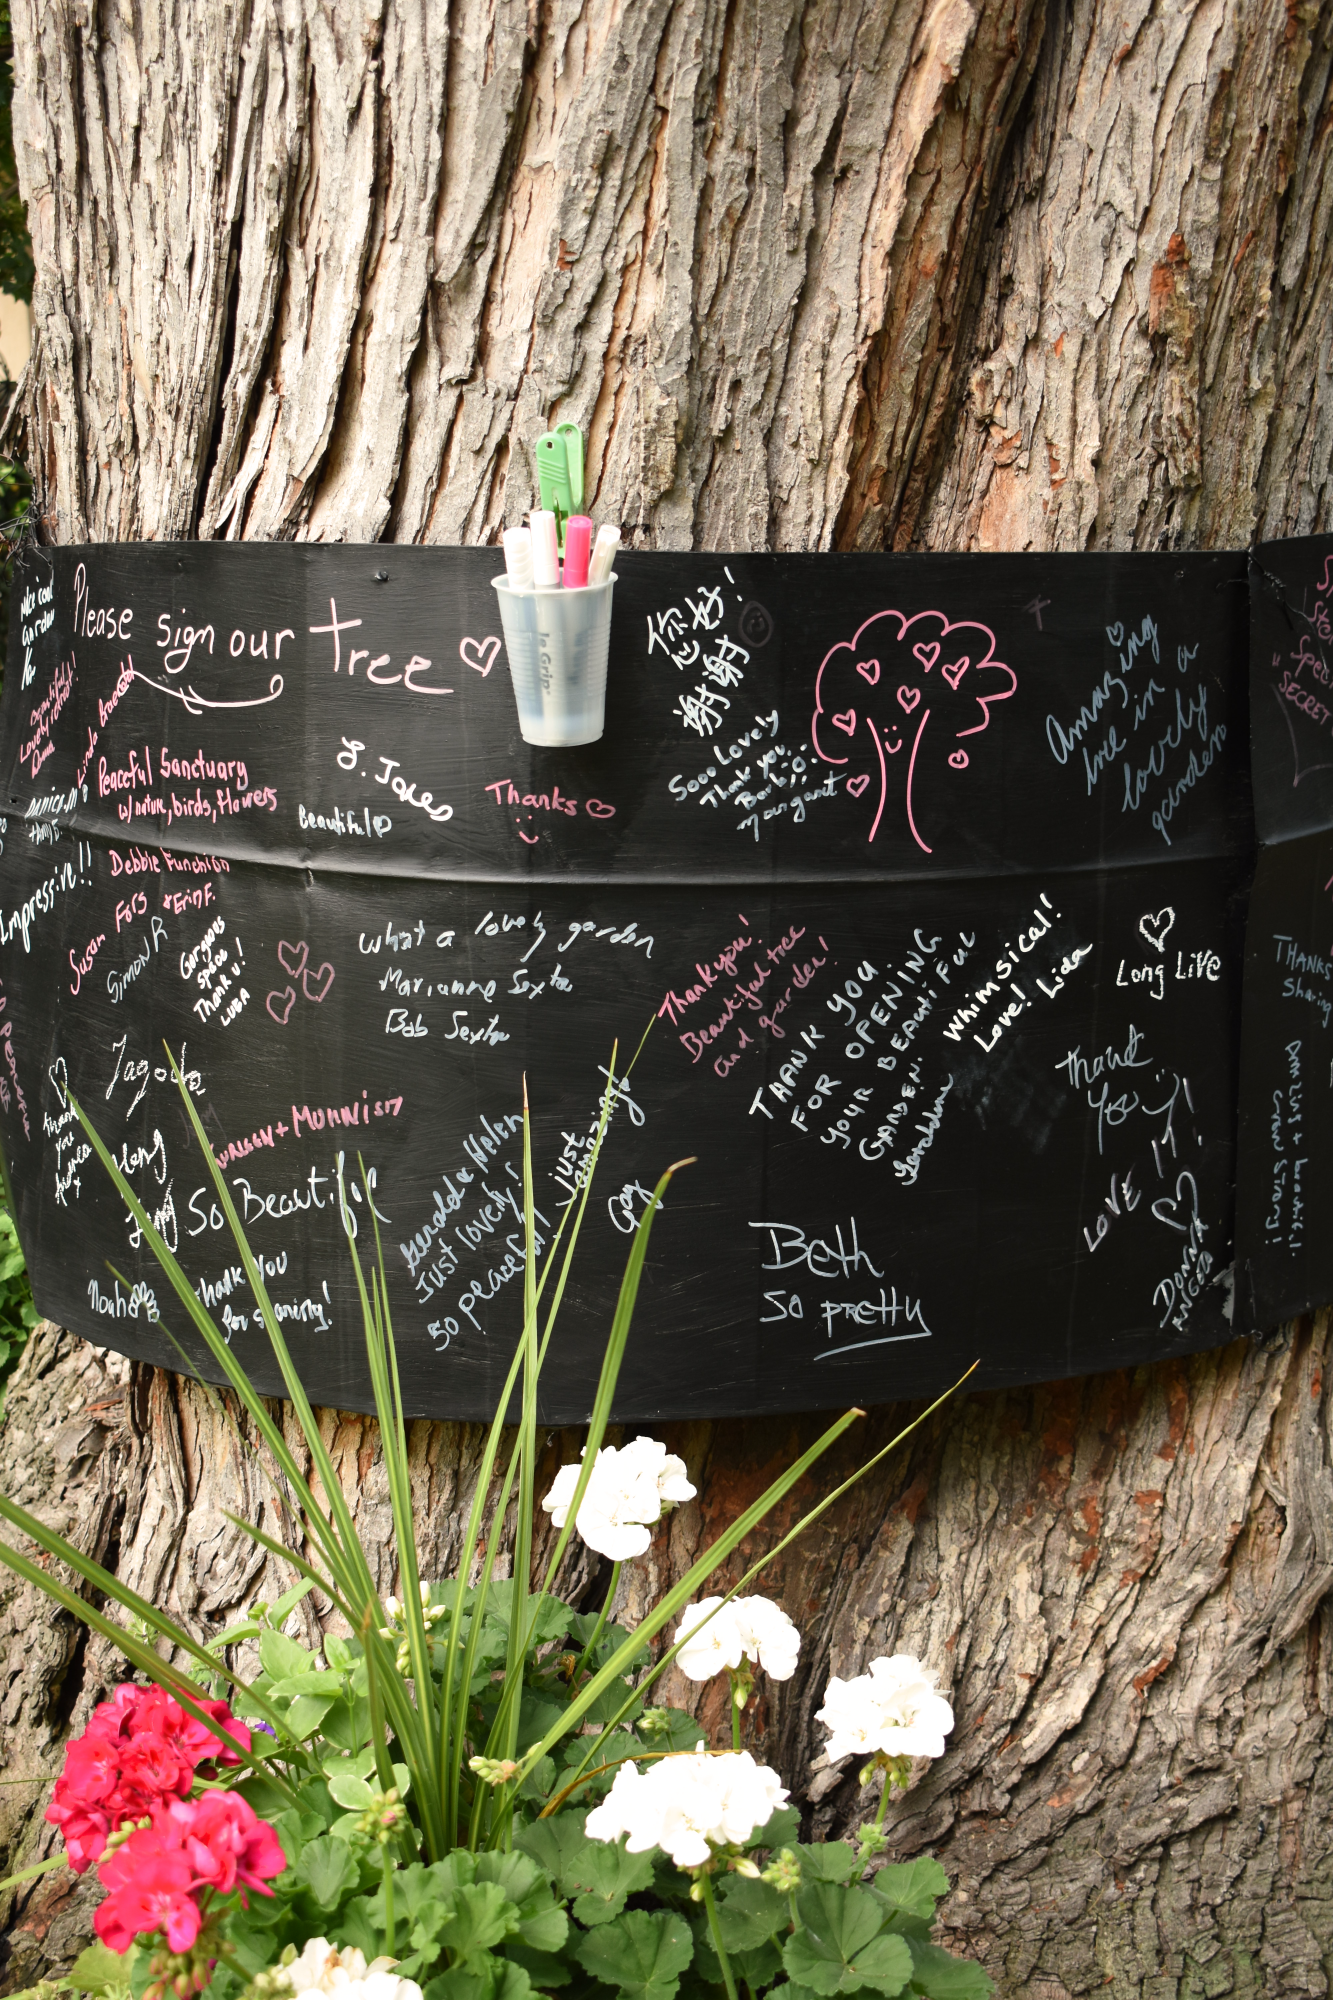 Please sign our tree
Nice cool
Garden
Beautiful
Lovely retreat
Linda
Peaceful Sanctuary
w/nature, birds, flowers
L. Jones
Beautiful
Thanks
您好!
谢谢
Sooo Lovely
Thank you
Barb
Margaret
Amazing
tree in a
lovely
garden
Special
SECRET
Impressive!!
Debbie Funchion
Susan Fors + Erin F.
Simon R
Gorgeous
space
Thank u!
LUBA
What a lovely garden
Marianne Sexton
Bob Sexton
Thank you!
Beautiful tree
and garden!
THANK YOU
FOR OPENING
YOUR BEAUTIFUL
GARDEN.
Whimsical!
Love! Lida
Long Live
THANKS
Sharing
Jagoda
Thank
you
Andrea
+ MUNNISH
So Beautiful
Thank you
for sharing!
Noah
Gerald & Helen
Just lovely!
so peaceful
just
amazing
Gay
Beth
so pretty
Thank
You
LOVE IT!
DONNA